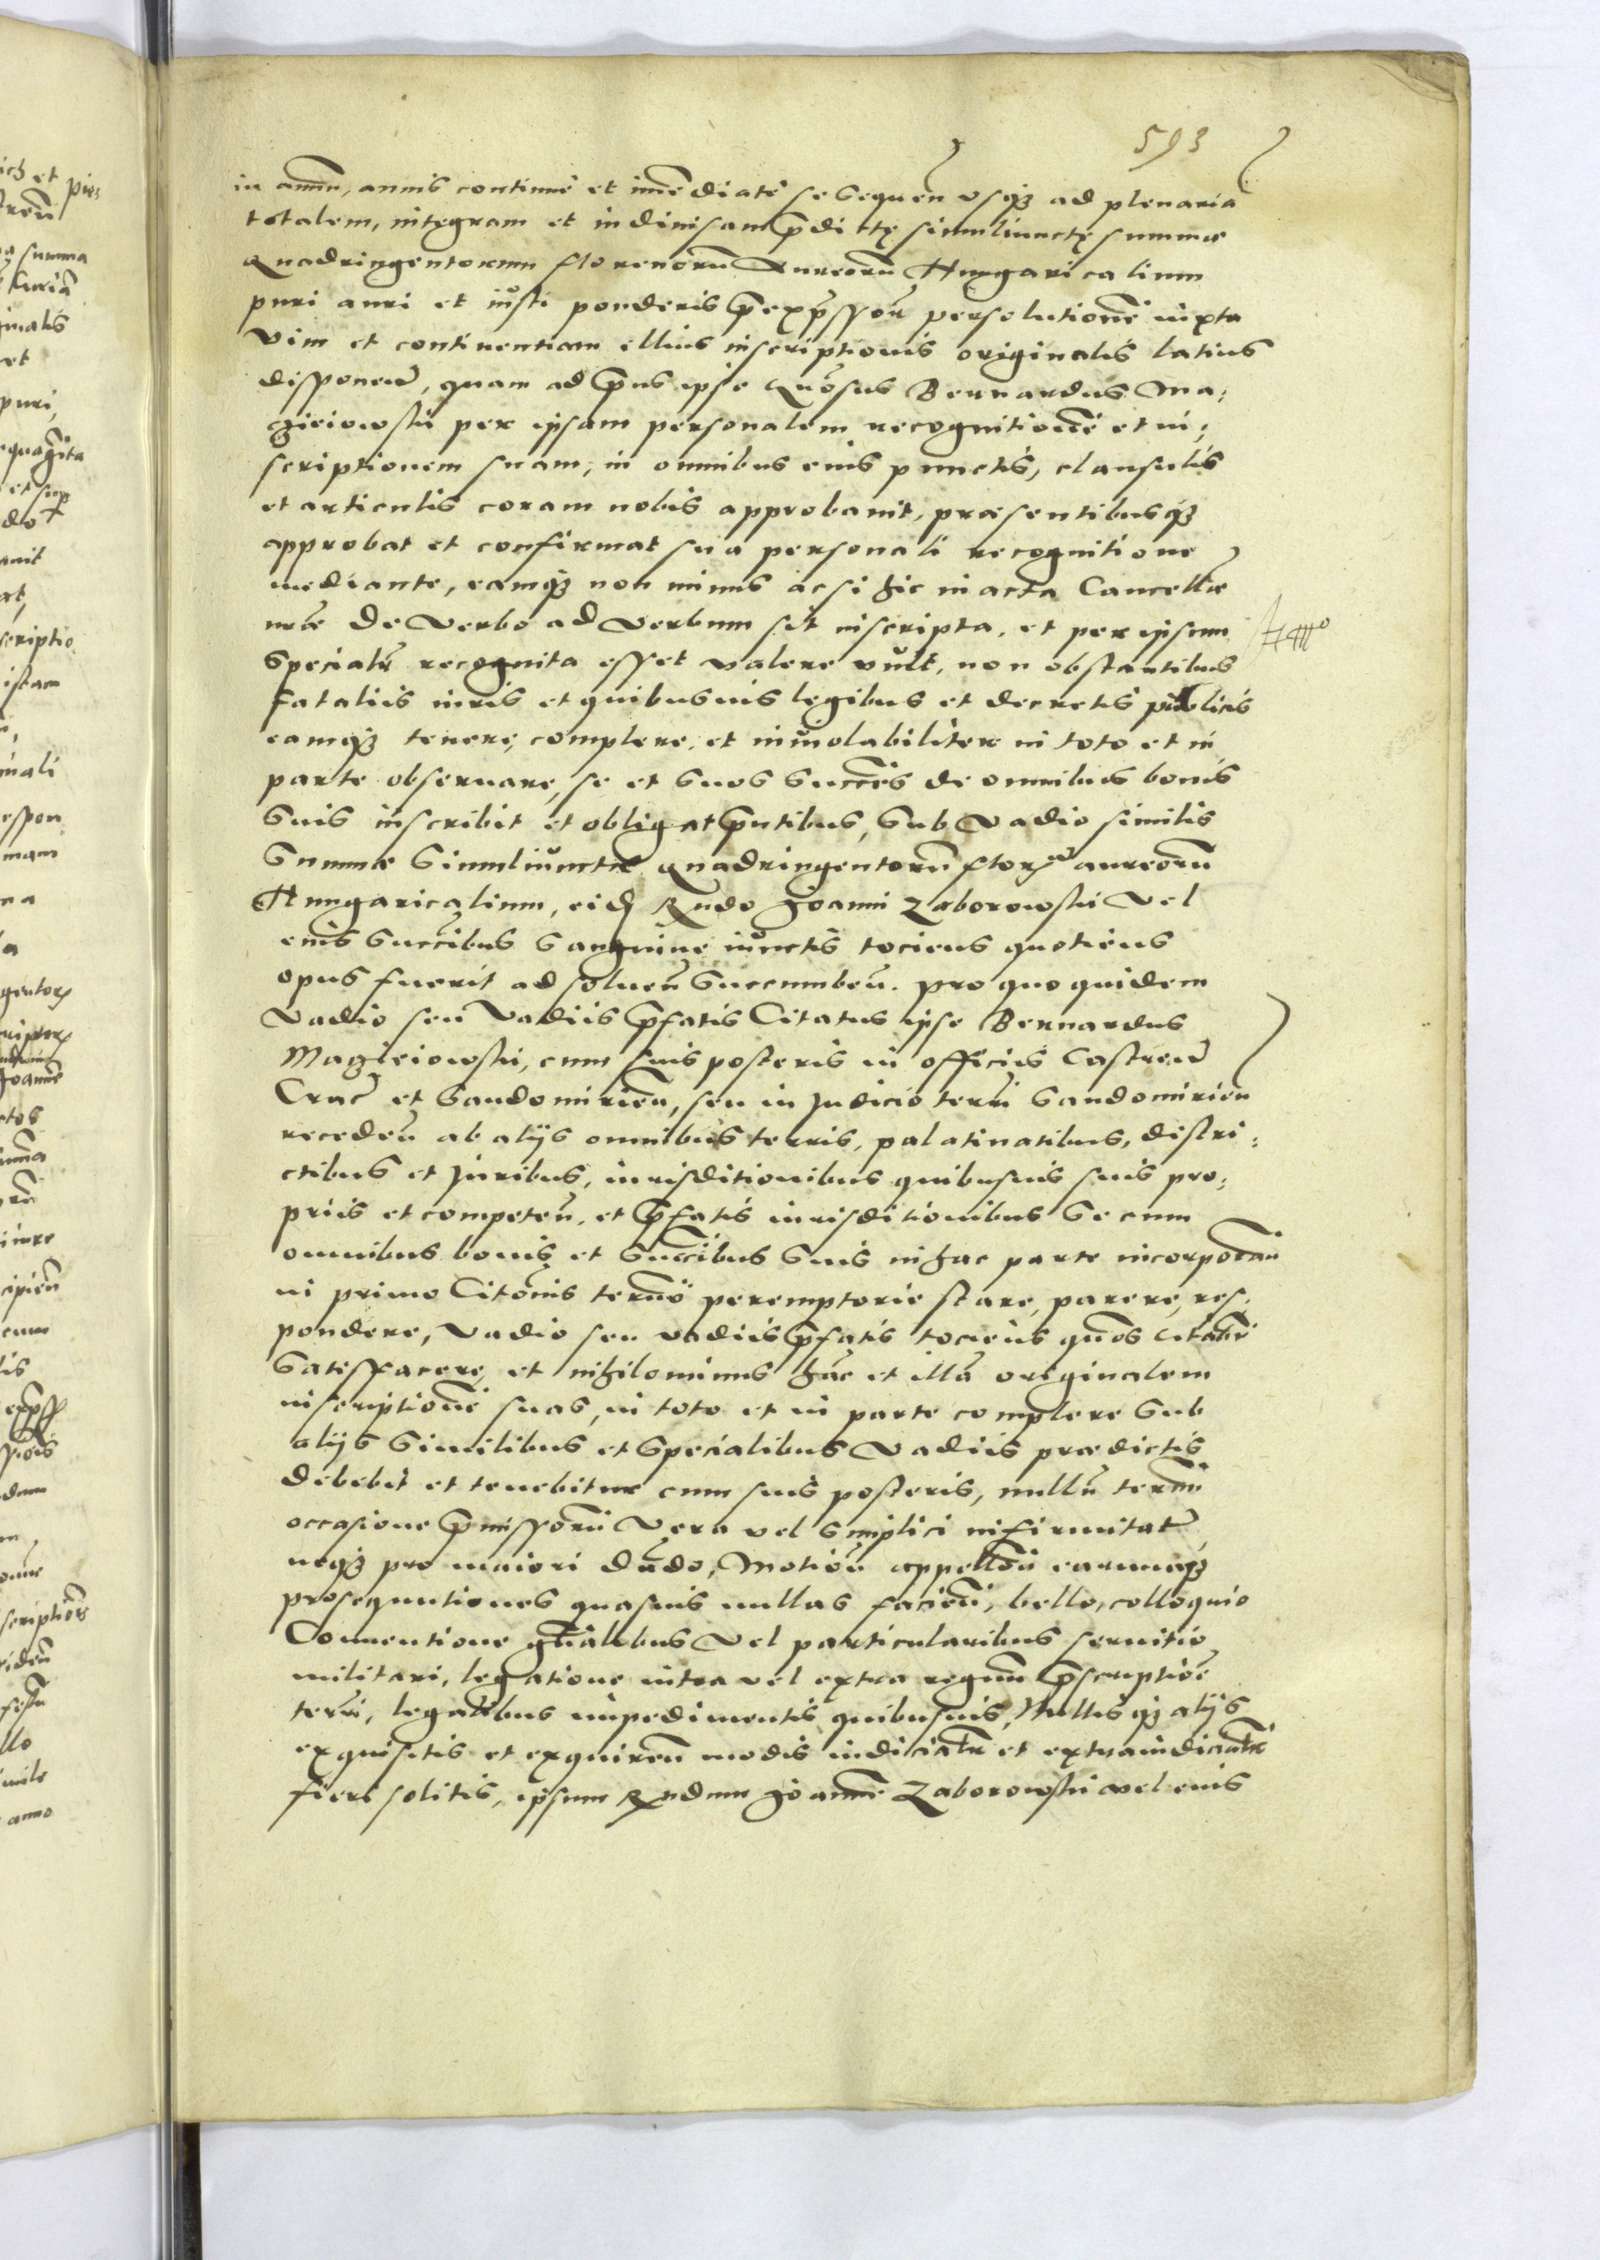 593
in annū, annis continue et im̄ediate se sequen̄ vsq3 ad plenariā
totalem, integram et indiuisam p̄dictę simuliunctę summæ
Quadringentorum florenorū Aureorū Hungaricalium
puri auri et iŭsti ponderis p̄exp̄ssorū persolutionē iuxta
vim et continentiam illius inscriptionis originalis latius
disponen̄, quam ad p̄ns ipse Gn̄osus Bernardus Ma,
czieiowski per ipsam personalem recognitionē et in,
scriptionem suam, in omnibus eius punctis, clausulis
et articulis coram nobis approbauit, præsentibusq3
approbat et confirmat sua personali recognitione
mediante, eamq3 non minus acsi hic in acta Cancellr̄iæ
nr̄æ de verbo ad verbum sit inscripta, et per ipsum
specialr̄ recognita esset valere vult, non obstantibus
fataliis iuris et quibusuis legibus et decretis publicis
eamq3 tenere, complere, et inŭiolabiliter in toto et in
parte obseruare, se et suos succ̄es de omnibus bonis
suis inscribit et obligat p̄ntibus, sub vadio similis
summæ simuliŭnctæ quadringentorū flor aureorū
Hungaricalium, eid Rn̄do Joanni Zaborowski vel
eius succ̄ibus sanguine iŭnctis tociens quotiens
opus fuerit ad soluen̄ succumben̄. pro quo quidem
vadio seu vadiis p̄fatis Citatus ipse Bernardus
Maczieiowski, cum suis posteris in officiis Castren̄
Crac̄ et Sandomirien̄, seu in Judicio terrī Sandomirien̄
receden̄ ab alijs omnibus terris, palatinatibus, distri,
ctibus et Juribus, iurisditionibus quibusuis suis pro,
priis et competen̄. et p̄fatis iurisditionibus se cum
omnibus bonis et succ̄ibus suis in hac parte incorporan̄
in primo Citōnis termō peremptorie stare, parere, res,
pondere, vadio seu vadiis p̄fatis tociens quōs citabr̄
satisfacere, et nihilominus hāc et illā originalem
inscriptionē suas, in toto et in parte complere sub
alijs similibus et specialibus vadiis prædictis
debebit et tenebitur cum suis posteris, nullū termī
occasione p̄missorū vera vel simplici infirmitate
neq3 pro maiori dn̄do, Motion̄ appellōn̄ earumq3
prosequutiones quasuis nullas facien̄, bello, colloquio
Conuentione gn̄alibus vel particularibus seruitio
militari, legatione intra vel extra regnū p̄scriptionē
terrī, legalibus impedimentis quibusuis, Nullisq3 alijs
exquisitis et exquiren̄ modis iudicialr̄ et extraiudicialr̄
fieri solitis, ipsum Rn̄dum Joannē Zaborowski vel eius